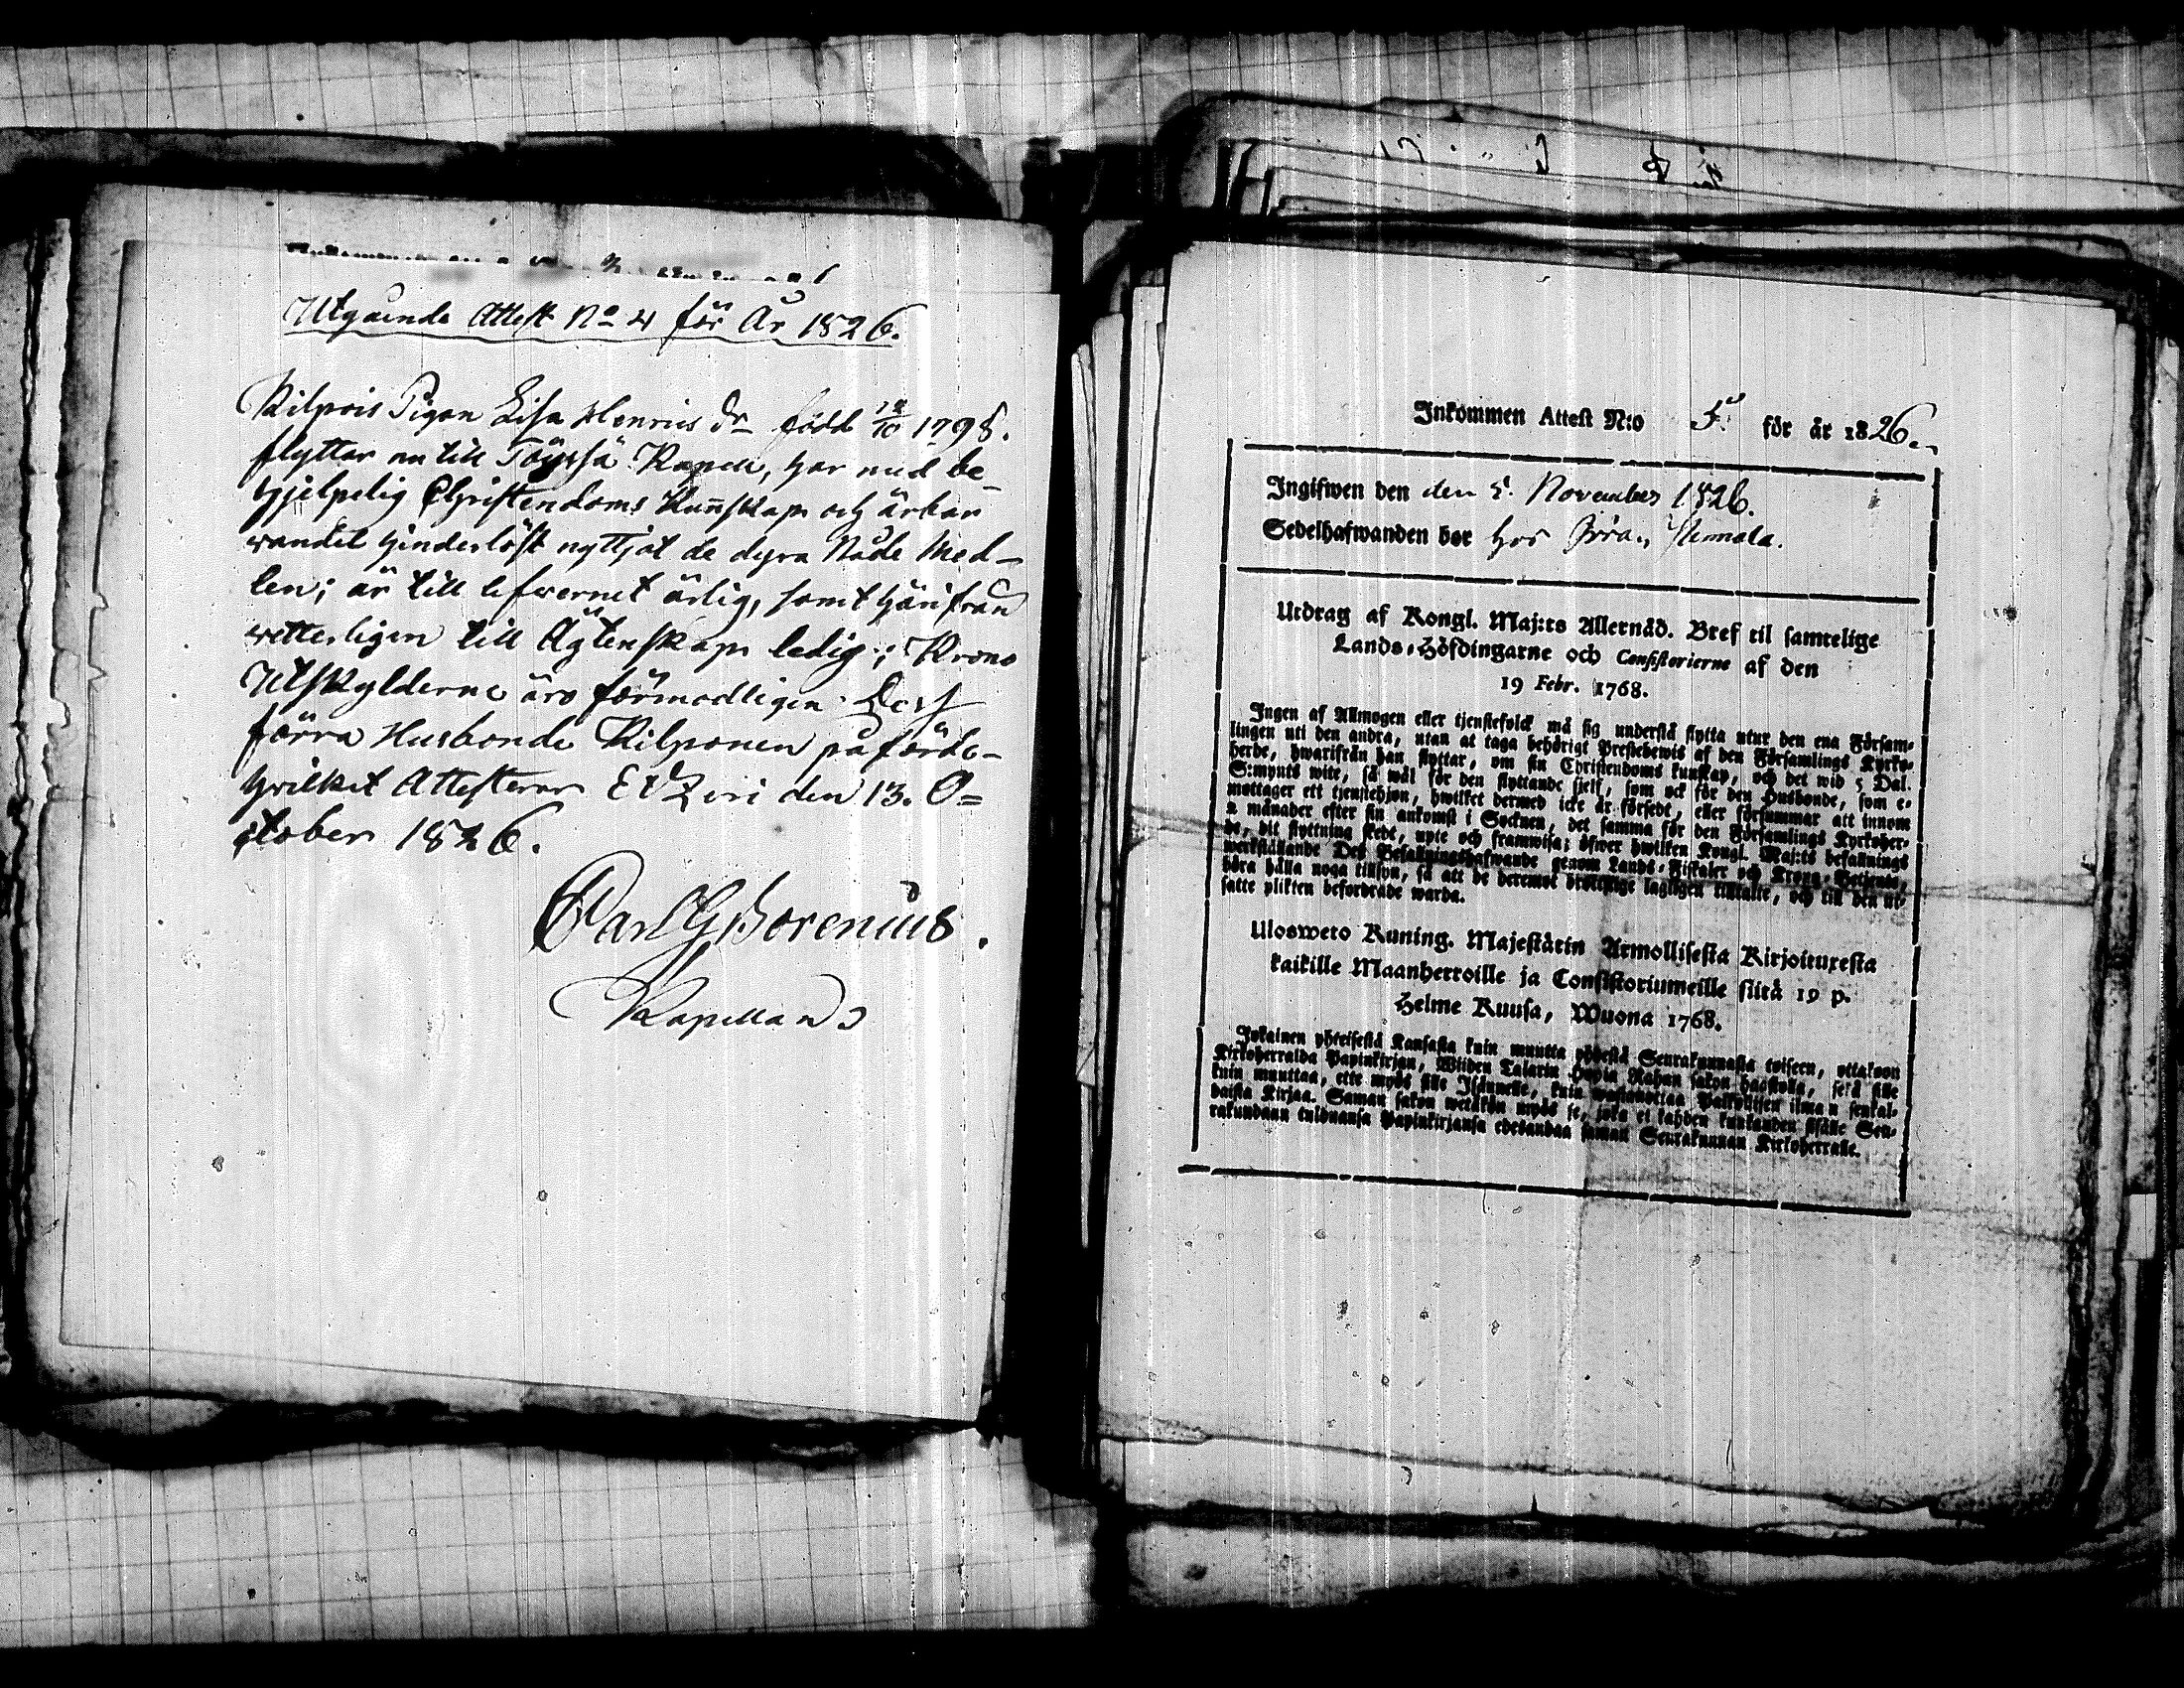 Utgående Attest No 4 för År 1826.
Kilpois Pigan Lisa Henrics dr född 18/10 1798.
flyttar nu till Töysä Kapell, har med be-
hjelpelig Christendoms Kunskap och ärbar
vandel hinderlöst nyttjat de dyra Nåde Med-
len; är till lefvernet ärlig, samt härifrån
vetterligen till Ägtenskap ledig; Krono
Utskylderne äro förmodligen Dess
förra Husbonde Kilponen påförde-
hvilket Attesterar Etzeri den 13. O=
ctober 1826.
Carl G Borenius.
Kapellan
Inkommen Attest N:o 5. för år 1826.
Ingifwen den den 5. November 1826.
Sedelhafwanden bor hos
Utdrag af Kongl. Maj:ts Allernåd. Bref til samtelige
Lands-Höfdingarne och Consistorierne af den
19 Febr. 1768.
Ingen af Allmogen eller tjenstefolck må sig understå flytta utur den ena Försam-
lingen uti den andra, utan at taga behörigt Prestebewis af den Församlings Kyrko-
herde, hwarifrån han flyttar, om sin Christendoms kunskap, och det wid 5 Dal.
S:mynts wite, så wäl för den flyttande sjelf, som ock för den Husbonde, som e-
mottager ett tjenstehjon, hwilket dermed icke är försedt, eller försummar att innom
2 månader efter sin ankomst i Socknen, det samma för den Församlings Kyrkoher-
de, dit flyttning skedt, upte och framwisa; öfwer hwilken Kongl. Maj:ts befallnings
werkställande Des Befallningshafwande genom Lands-Fiskaler och Krono-Betjente,
böra hålla noga tillsyn, så att de deremot brottslige lagligen tilltalte, och till den ut-
satte plikten befordrade warda.
Ulosweto Kuning. Majestätin Armollisesta Kirjoituxesta
kaikille Maanherroille ja Consistoriumeille siitä 19 p.
Helme Kuusa, Wuona 1768.
Jokainen yhteisestä Kansasta kuin muutta yhdestä Seurakunnasta toiseen, ottakoon
Kirkoherralda Papinkirjan, Wiiden Talarin Hopia Rahan sakon haastolla, sekä sille
kuin muuttaa, ette myös sille Isännelle, kuin wastanottaa Palkollisen ilman senkal-
daista Kirjaa. Saman sakon wetäkön myös se, joka ei kahden kuukauden sisälle Seu-
rakundaan tulduansa Papinkirjansa edesandaa saman Seurakunnan Kirkoherralle.